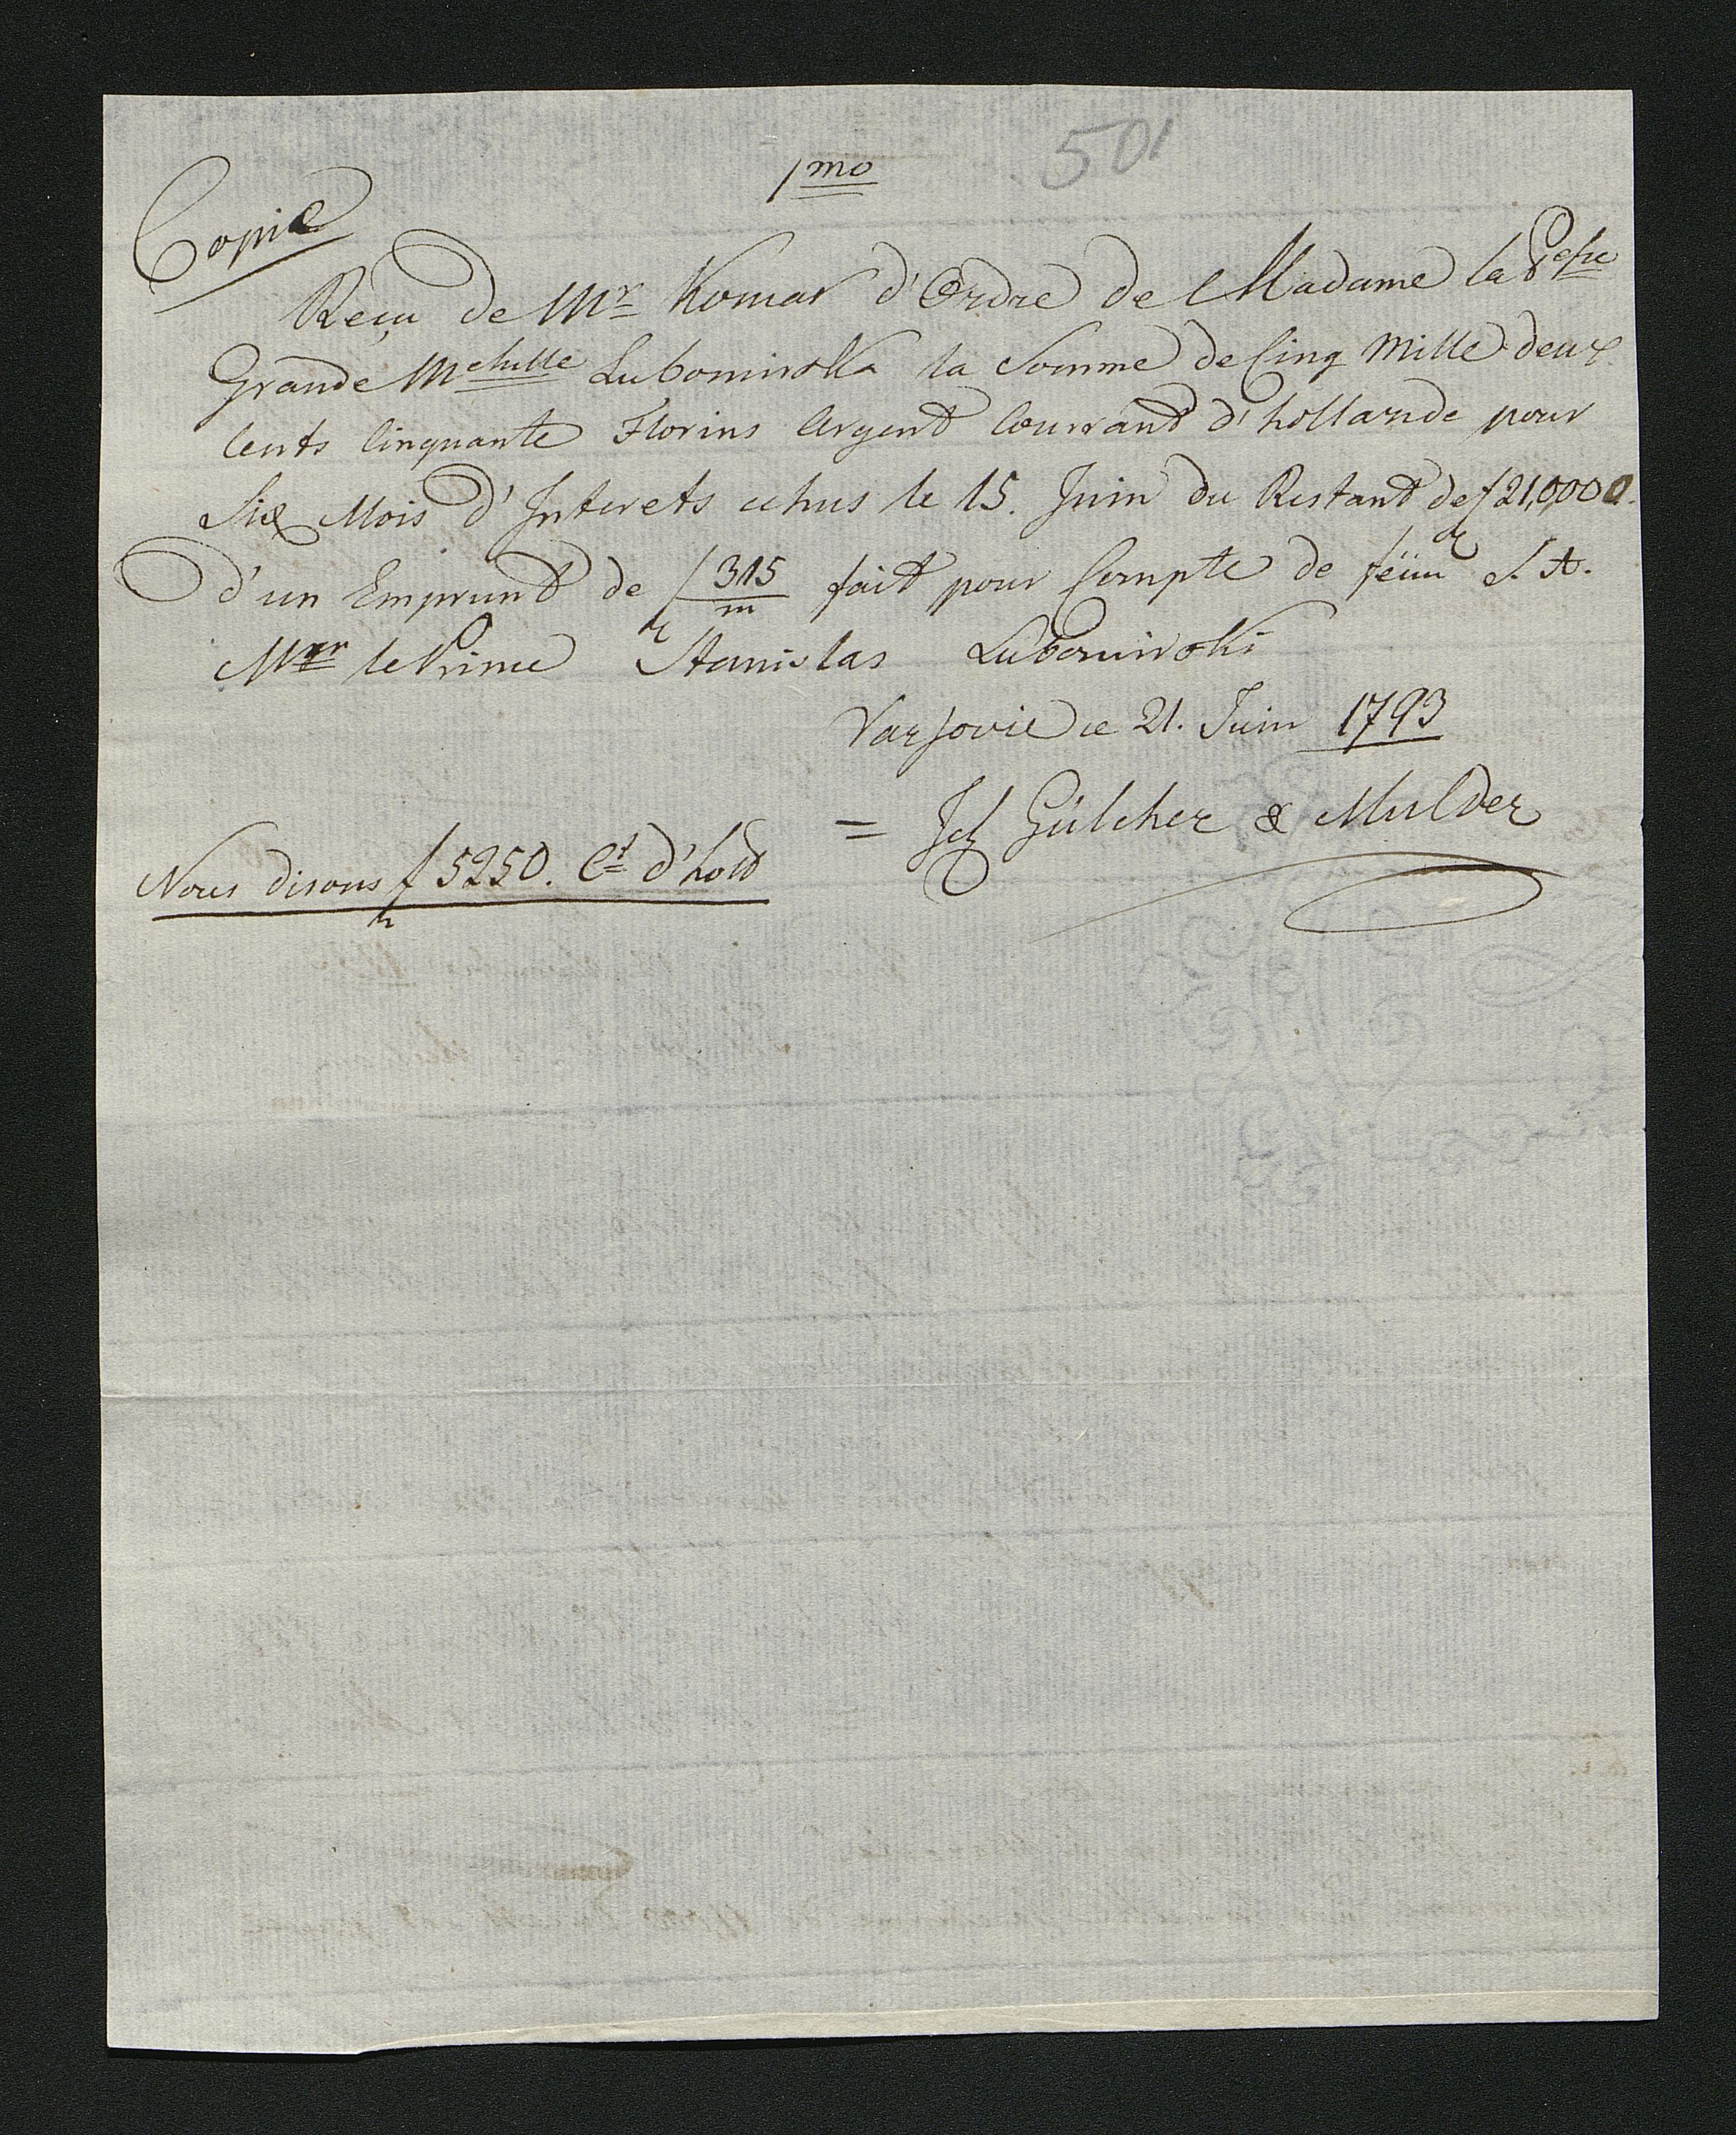 501
1mo
Copie
Reçu de Mr Komar d'Ordre de Madame la Pcsse
Grande Mchalle Lubomirska la Somme de Cinq Mille deux
Cents Cinquante Florins Argent Courrant d'hollande pour
Six Mois d'Interets echus le 15. Juin du Restant de f 21,0000.
d'un Emprunt de f 315/m fait pour Compte de feüu S. A.
Mgr le Prince Stanislas Lubomirski
Varsovie ce 21. Juin 1793
= Gülcher & Mulder
Nous disons f 5250. Ct d'holl